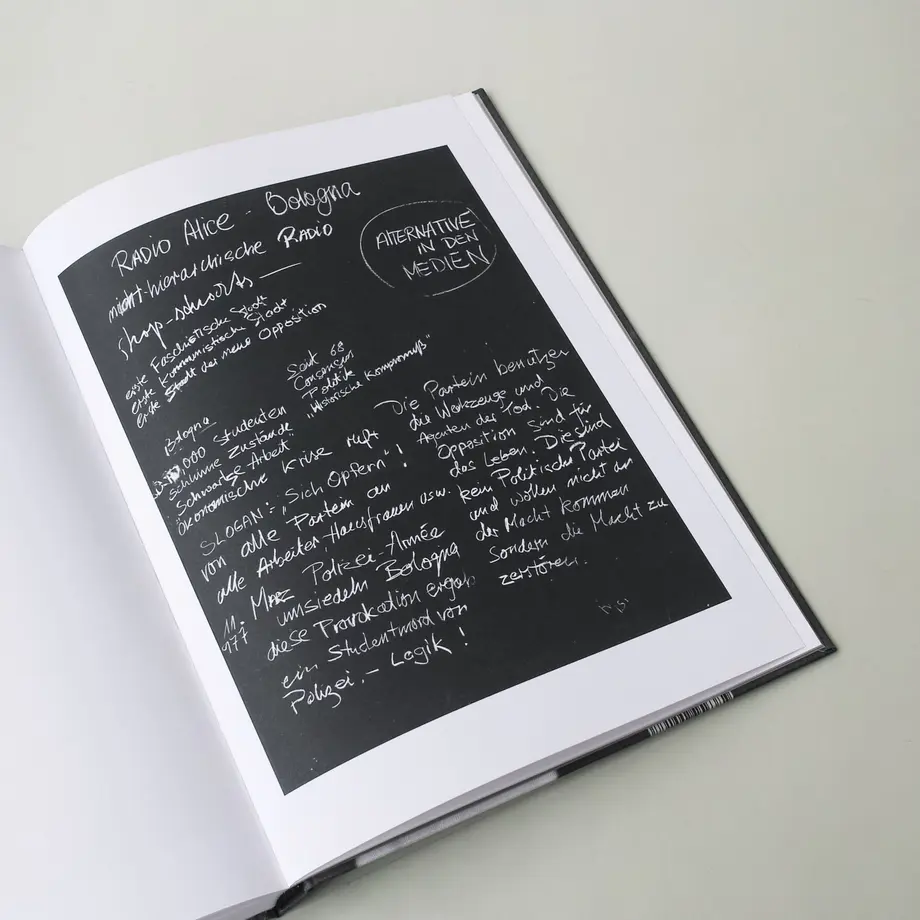 RADIO Alice - Bologna
nicht-hierarchische RADIO
ALTERNATIVE
IN DEN
MEDIEN
erste Faschistische Stadt
erste Kommunistische Stadt
erste Stadt der neue Opposition
Seit 68
Consensus
Politik
"Historische Kompromuß"
Bologna
000 Studenten
schlimme Zustände
Schwarze Arbeit"
ökonomische Krise ruft
SLOGAN: "Sich Opfern"!
von alle Partein an
alle Arbeiter, Hausfrauen usw.
11. März Polizei-Armée
977 umsiedeln Bologna
diese Provokation ergab
ein Studentmord von
Polizei. - Logik!
Die Partein benutzen
die Werkzeuge und
Agenten der Tod. Die
Opposition sind für
das Leben. Die sind
kein Politische Partei
und wollen nicht an
der Macht kommen
sondern die Macht zu
zerstören.